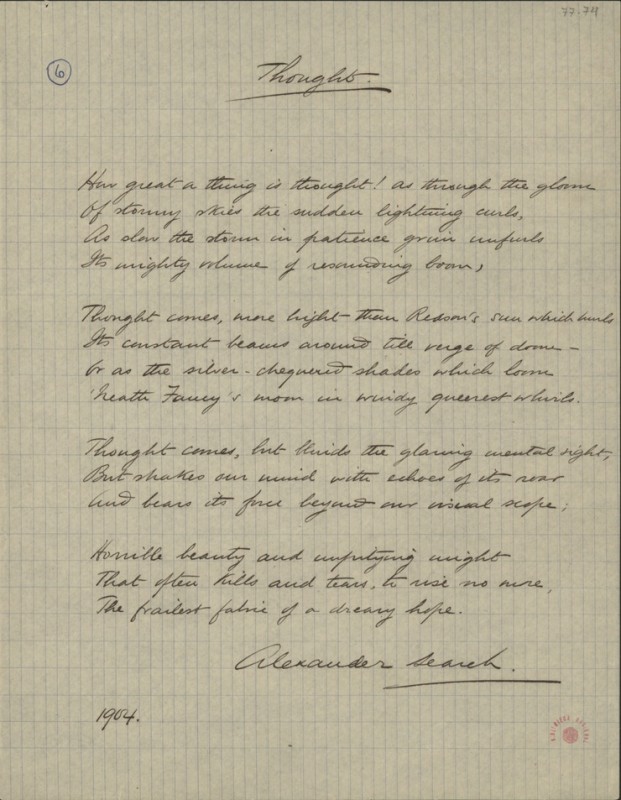 77-74
6
Thought.
How great a thing is thought! As through the gloom
Of stormy skies the sudden lightning curls,
As slow the storm in patience grim unfurls
Its mighty volume of resounding boom,
Thought comes, more bright than Reason's sun which hurls
Its constant beams around till verge of doom –
Or as the silver-chequered shades which loom
'Neath Fancy's moon in windy queerest whirls.
Thought comes, but blinds the glaring mental sight,
But shakes our mind with echoes of its roar
And bears its force beyond our visual scope;
Horrible beauty and unpitying might
That often kills and tears, to rise no more,
The frailest fabric of a dreamy hope.
Alexander Search.
1904.